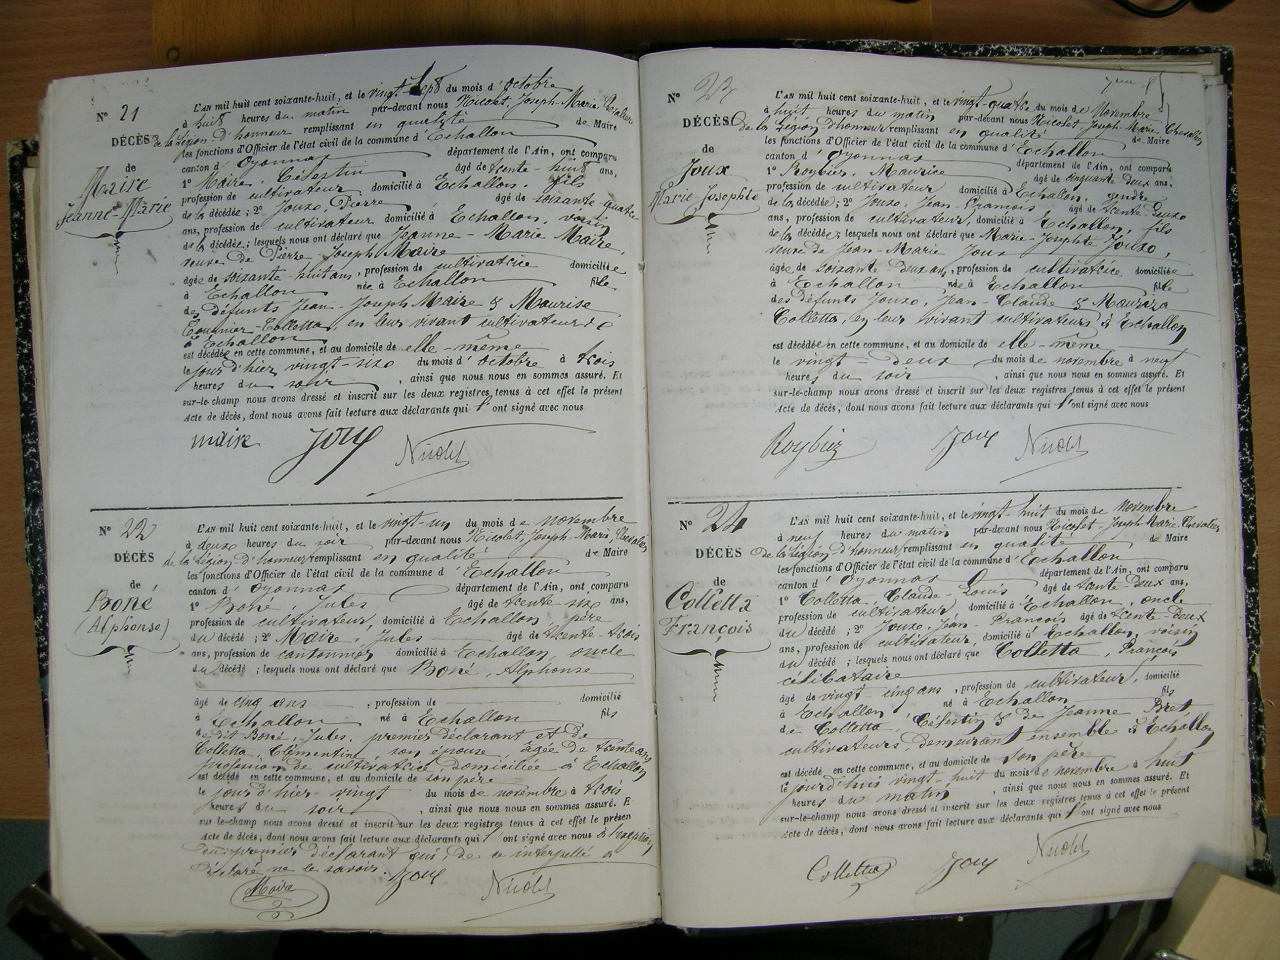 N° 21
DÉCÈS
de
Maire
Jeanne-Marie
L'AN mil huit cent soixante-huit, et le vingt-sept du mois d'Octobre
à huit heures du matin par-devant nous Nicolet, Joseph-Marie Chevalier
de la Légion d'honneur remplissant en qualité de Maire
les fonctions d'Officier de l'état civil de la commune d'Echallon
canton d'Oyonnax département de l'Ain, ont comparu
1° Maire Célestin âgé de trente-huit ans,
profession de cultivateur domicilié à Echallon, fils
de la décédée; 2° Joux Pierre âgé de soixante quatre
ans, profession de cultivateur domicilié à Echallon, voisin
de la décédée; lesquels nous ont déclaré que Jeanne-Marie Maire,
veuve de Pierre-Joseph Maire
âgée de soixante huit ans, profession de cultivatrice domiciliée
à Echallon née à Echallon fille
des défunts Jean-Joseph Maire & Maurise
Tournier-Colletta, en leur vivant cultivateurs
à Echallon
est décédée en cette commune, et au domicile de elle-même
le jour d'hier vingt-six du mois d'Octobre à trois
heures du soir, ainsi que nous nous en sommes assuré. Et
sur-le-champ nous avons dressé et inscrit sur les deux registres tenus à cet effet le présent
Acte de décès, dont nous avons fait lecture aux déclarants qui l'ont signé avec nous
maire Joux Nicolet
N° 22
DÉCÈS
de
Boné
(Alphonse)
L'AN mil huit cent soixante-huit, et le vingt-un du mois de novembre
à deux heures du soir par-devant nous Nicolet, Joseph-Marie, Chevalier
de la Légion d'honneur, remplissant en qualité de Maire
les fonctions d'Officier de l'état civil de la commune d'Echallon
canton d'Oyonnax département de l'Ain, ont comparu
1° Boné Jules âgé de trente six ans,
profession de cultivateur, domicilié à Echallon, père
du décédé; 2° Maire Jules âgé de trente-trois
ans, profession de cantonnier domicilié à Echallon, oncle
du décédé; lesquels nous ont déclaré que Boné, Alphonse
âgé de cinq ans, profession de domicilié
à Echallon né à Echallon fils
de dit Boné, Jules, premier déclarant et de
Colletta Clémentine, son épouse âgée de trente ans
profession de cultivatrice, domiciliée à Echallon
est décédé en cette commune, et au domicile de son père
le jour d'hier-vingt du mois de novembre à trois
heures du soir, ainsi que nous nous en sommes assuré. E
sur-le-champ nous avons dressé et inscrit sur les deux registres tenus à cet effet le présen
Acte de décès, dont nous avons fait lecture aux déclarants qui l'ont signé avec nous
du premier déclarant qui, de ce interpellé a
déclaré ne le savoir.
Maire Joux Nicolet
N° 23
DÉCÈS
de
Joux
Marie Josephte
L'AN mil huit cent soixante-huit, et le vingt-quatre du mois de Novembre
à huit heures du matin par-devant nous Nicolet Joseph-Marie-Chevalier
de la Légion d'honneur remplissant en qualité de Maire
les fonctions d'Officier de l'état civil de la commune d'Echallon
canton d'Oyonnax département de l'Ain, ont comparu
1° Roybier, Maurice âgé de cinquante deux ans,
profession de cultivateur domicilié à Echallon, gendre
de la décédée; 2° Joux, Jean-François âgé de trente-deux
ans, profession de cultivateur, domicilié à Echallon, fils
de la décédée; lesquels nous ont déclaré que Marie-Josephte Joux,
veuve de Jean-Marie Joux
âgée de soixante deux ans, profession de cultivatrice domiciliée
à Echallon née à Echallon fille
des défunts Joux, Jean-Claude &
Colletta, en leur vivant cultivateurs à Echallon
est décédée en cette commune, et au domicile de elle-même
le vingt deux du mois de novembre à neuf
heures du soir, ainsi que nous nous en sommes assuré. Et
sur-le-champ nous avons dressé et inscrit sur les deux registres tenus à cet effet le présent
Acte de décès, dont nous avons fait lecture aux déclarants qui l'ont signé avec nous
Roybier Joux Nicolet
N° 24
DÉCÈS
de
Colletta
François
L'AN mil huit cent soixante-huit, et le vingt huit du mois de Novembre
à neuf heures du matin par-devant nous Nicolet-Joseph-Marie-Chevalier
de la Légion d'honneur remplissant en qualité de Maire
les fonctions d'Officier de l'état civil de la commune d'Echallon
canton d'Oyonnax département de l'Ain, ont comparu
1° Colletta Claude-Louis âgé de trente deux ans,
profession de cultivateur domicilié à Echallon, oncle
du décédé; 2° Joux, Jean-François âgé de trente-deux
ans, profession de cultivateur, domicilié à Echallon, voisin
du décédé; lesquels nous ont déclaré que Colletta, François
célibataire
âgé de vingt-cinq ans, profession de cultivateur, domicilié
à Echallon né à Echallon fils
de Colletta, Célestin & de Jeanne Bret
cultivateurs, demeurant ensemble à Echallon
est décédé en cette commune, et au domicile de son père
le jourd'hui vingt-huit du mois de novembre à huit
heures du matin, ainsi que nous nous en sommes assuré. Et
sur-le-champ nous avons dressé et inscrit sur les deux registres tenus à cet effet le présent
Acte de décès, dont nous avons fait lecture aux déclarants qui l'ont signé avec nous
Colletta Joux Nicolet